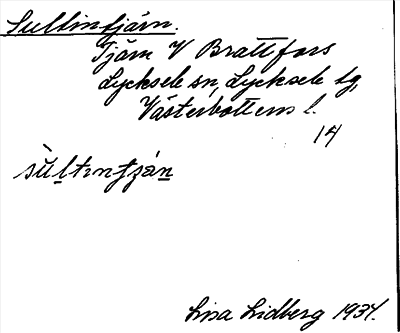 Sultintjärn.
Tjärn V Brattfors
Lycksele sn, Lycksele tg,
Västerbottens l.
14
sùltıntȷán
Lisa Lidberg 1937.